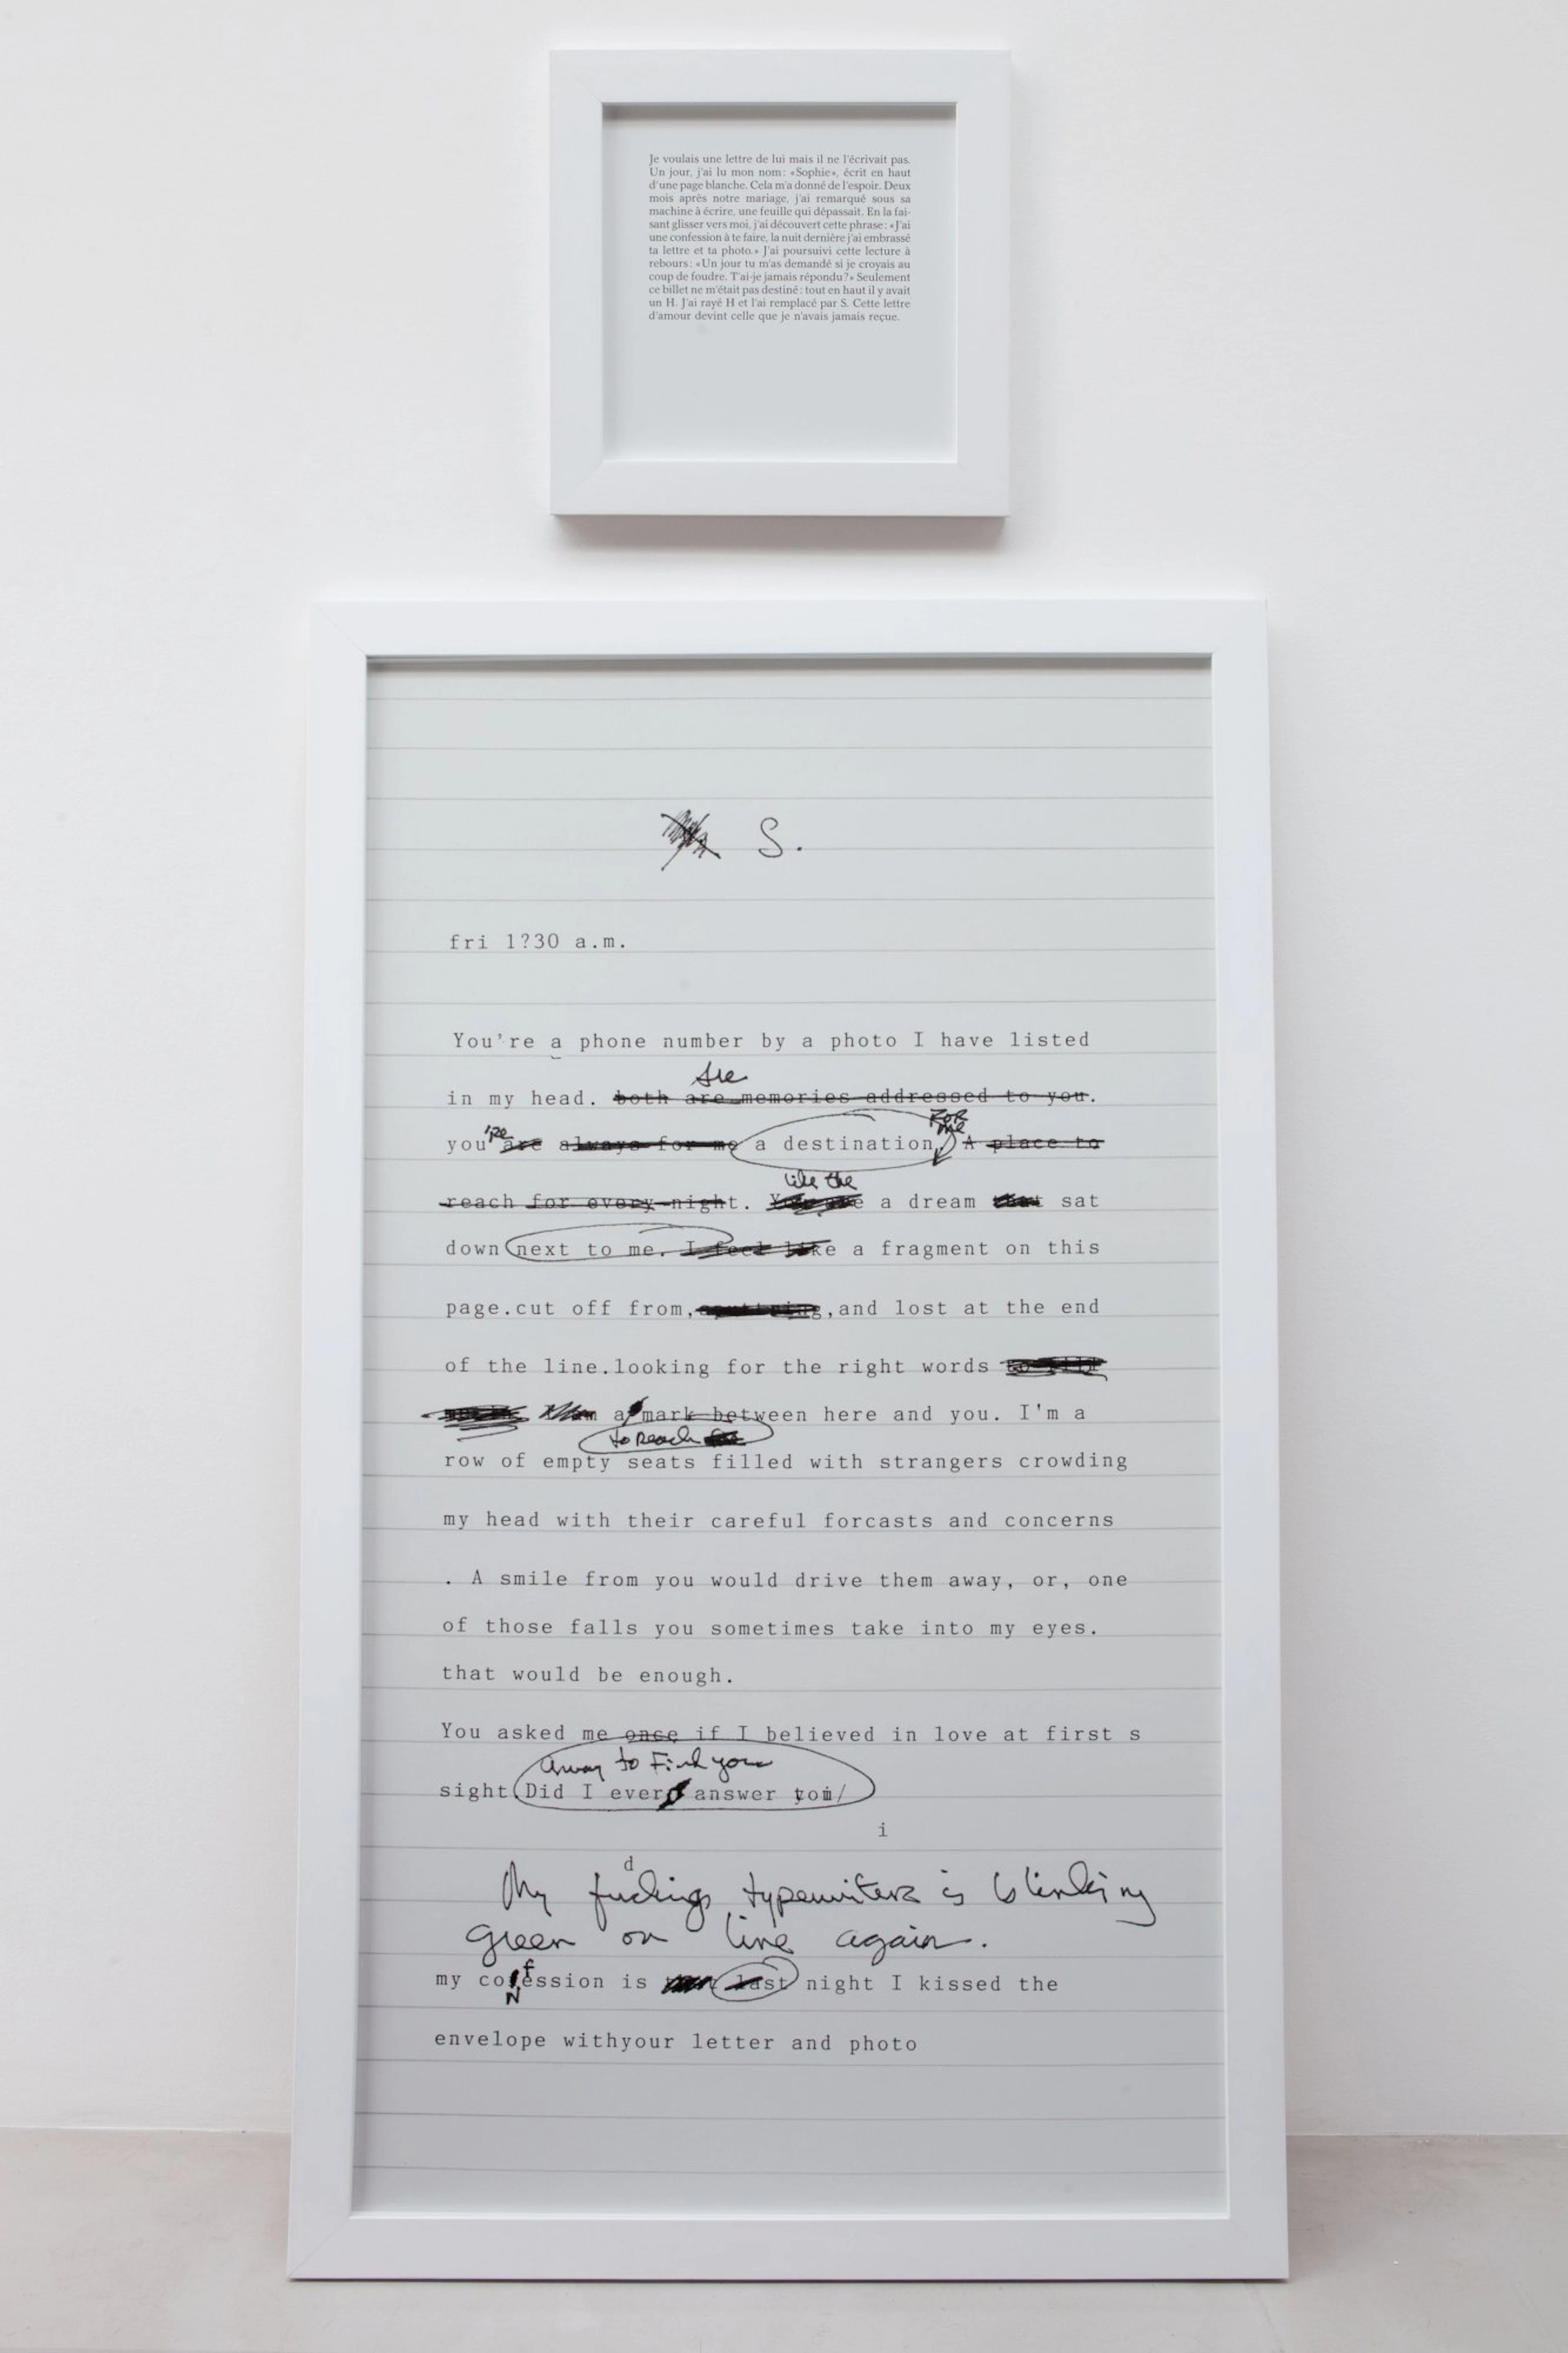 Je voulais une lettre de lui mais il ne l'écrivait pas.
Un jour, j'ai lu mon nom: «Sophie», écrit en haut
d'une page blanche. Cela m'a donné de l'espoir. Deux
mois après notre mariage, j'ai remarqué sous sa
machine à écrire, une feuille qui dépassait. En la fai-
sant glisser vers moi, j'ai découvert cette phrase: «J'ai
une confession à te faire, la nuit dernière j'ai embrassé
ta lettre et ta photo.» J'ai poursuivi cette lecture à
rebours: «Un jour tu m'as demandé si je croyais au
coup de foudre. T'ai-je jamais répondu?» Seulement
ce billet ne m'était pas destiné: tout en haut il y avait
un H. J'ai rayé H et l'ai remplacé par S. Cette lettre
d'amour devint celle que je n'avais jamais reçue.
S.
fri 1?30 a.m.
You're a phone number by a photo I have listed
in my head. both are memories addressed to you.
FOR me
you 're are always for me a destination, A place to
like the
reach for every night. a dream sat
down next to me. I feel like a fragment on this
page.cut off from, ,and lost at the end
of the line.looking for the right words
a mark between here and you. I'm a
to reach
row of empty seats filled with strangers crowding
my head with their careful forcasts and concerns
. A smile from you would drive them away, or, one
of those falls you sometimes take into my eyes.
that would be enough.
You asked me once if I believed in love at first s
away to Find you
sight.Did I ever answer
i
d
My fuckings typewriters is blinking
green on line again.
my coNfession is last night I kissed the
envelope withyour letter and photo